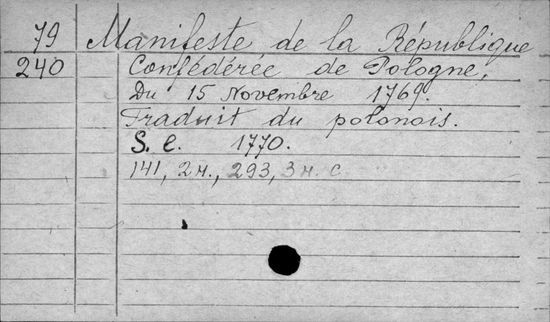 79 Manifeste de la République
240 Confédérée de Pologne,
Du 15 Novembre 1769.
Traduit du polonois.
S. l. 1770.
141, 2 н., 293, 3 н. с.